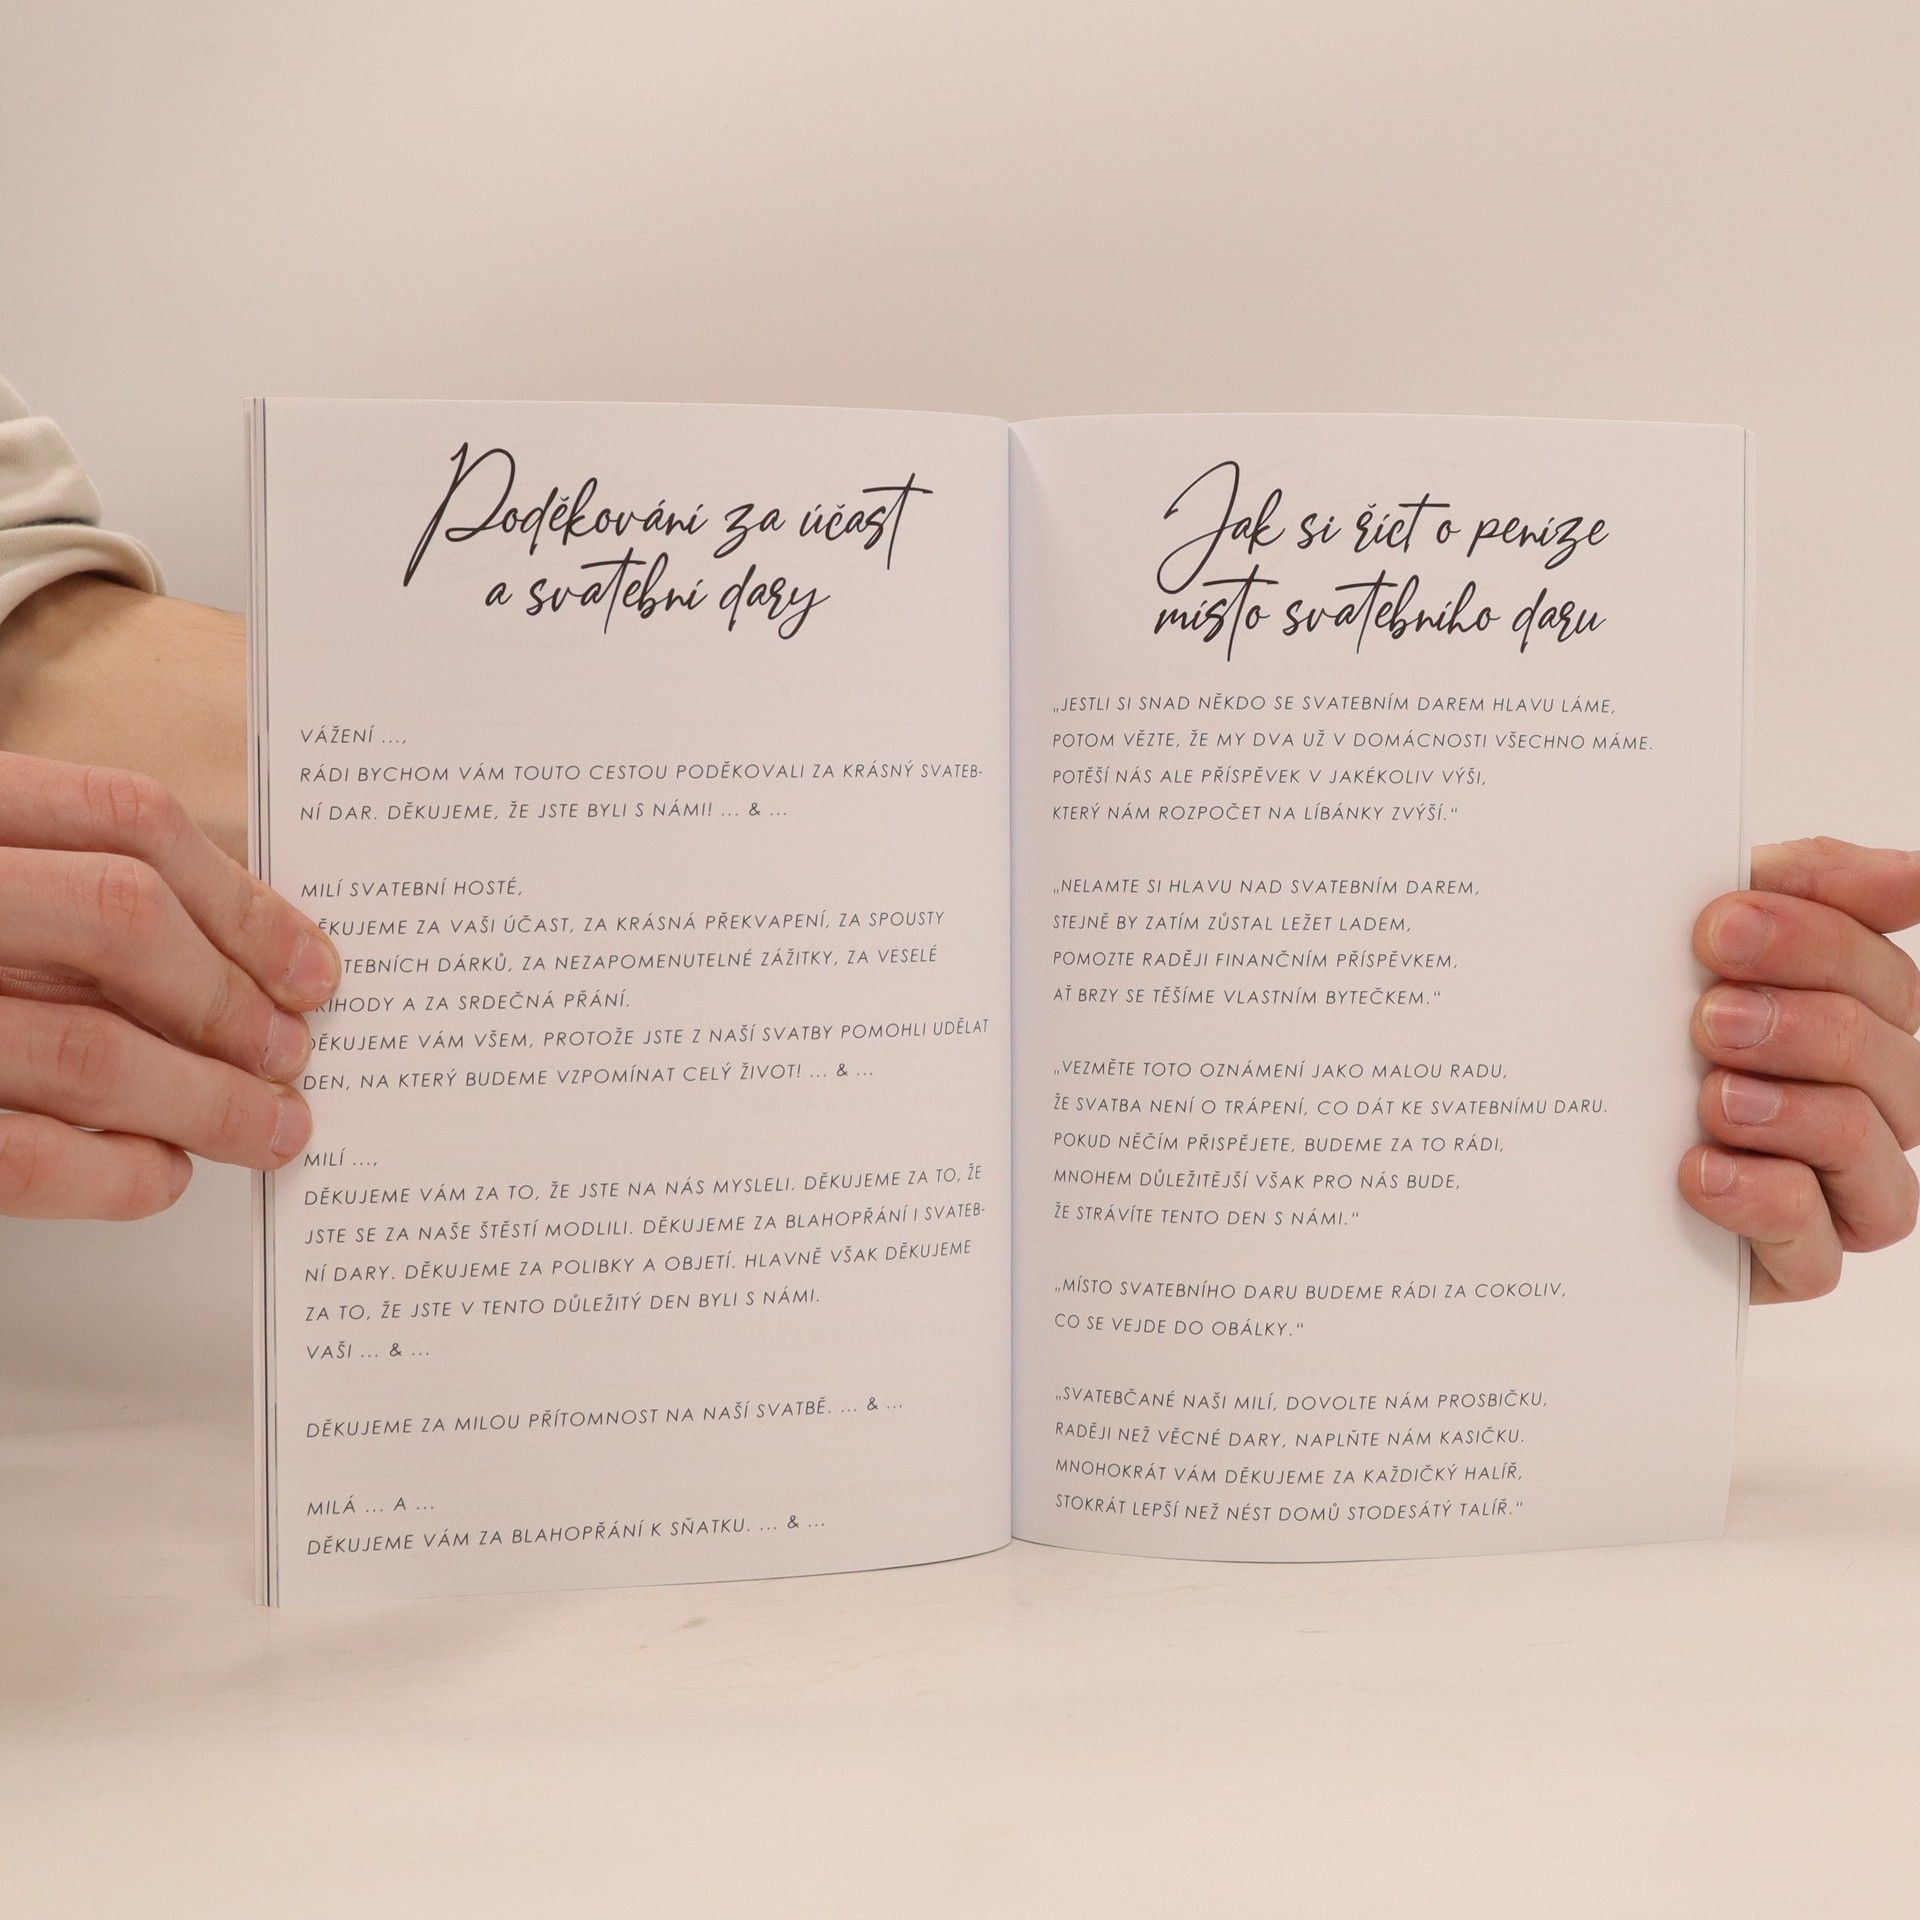 Poděkování za účast
a svatební dary
VÁŽENÍ ...,
RÁDI BYCHOM VÁM TOUTO CESTOU PODĚKOVALI ZA KRÁSNÝ SVATEB-
NÍ DAR. DĚKUJEME, ŽE JSTE BYLI S NÁMI! ... & ...
MILÍ SVATEBNÍ HOSTÉ,
ĚKUJEME ZA VAŠI ÚČAST, ZA KRÁSNÁ PŘEKVAPENÍ, ZA SPOUSTY
TEBNÍCH DÁRKŮ, ZA NEZAPOMENUTELNÉ ZÁŽITKY, ZA VESELÉ
ŘÍHODY A ZA SRDEČNÁ PŘÁNÍ.
DĚKUJEME VÁM VŠEM, PROTOŽE JSTE Z NAŠÍ SVATBY POMOHLI UDĚLAT
DEN, NA KTERÝ BUDEME VZPOMÍNAT CELÝ ŽIVOT! ... & ...
MILÍ ...,
DĚKUJEME VÁM ZA TO, ŽE JSTE NA NÁS MYSLELI. DĚKUJEME ZA TO, ŽE
JSTE SE ZA NAŠE ŠTĚSTÍ MODLILI. DĚKUJEME ZA BLAHOPŘÁNÍ I SVATEB-
NÍ DARY. DĚKUJEME ZA POLIBKY A OBJETÍ. HLAVNĚ VŠAK DĚKUJEME
ZA TO, ŽE JSTE V TENTO DŮLEŽITÝ DEN BYLI S NÁMI.
VAŠI ... & ...
DĚKUJEME ZA MILOU PŘÍTOMNOST NA NAŠÍ SVATBĚ. ... & ...
MILÁ ... A ...
DĚKUJEME VÁM ZA BLAHOPŘÁNÍ K SŇATKU. ... & ...
Jak si říct o peníze
místo svatebního daru
„JESTLI SI SNAD NĚKDO SE SVATEBNÍM DAREM HLAVU LÁME,
POTOM VĚZTE, ŽE MY DVA UŽ V DOMÁCNOSTI VŠECHNO MÁME.
POTĚŠÍ NÁS ALE PŘÍSPĚVEK V JAKÉKOLIV VÝŠI,
KTERÝ NÁM ROZPOČET NA LÍBÁNKY ZVÝŠÍ.“
„NELAMTE SI HLAVU NAD SVATEBNÍM DAREM,
STEJNĚ BY ZATÍM ZŮSTAL LEŽET LADEM,
POMOZTE RADĚJI FINANČNÍM PŘÍSPĚVKEM,
AŤ BRZY SE TĚŠÍME VLASTNÍM BYTEČKEM.“
„VEZMĚTE TOTO OZNÁMENÍ JAKO MALOU RADU,
ŽE SVATBA NENÍ O TRÁPENÍ, CO DÁT KE SVATEBNÍMU DARU.
POKUD NĚČÍM PŘISPĚJETE, BUDEME ZA TO RÁDI,
MNOHEM DŮLEŽITĚJŠÍ VŠAK PRO NÁS BUDE,
ŽE STRÁVÍTE TENTO DEN S NÁMI.“
„MÍSTO SVATEBNÍHO DARU BUDEME RÁDI ZA COKOLIV,
CO SE VEJDE DO OBÁLKY.“
„SVATEBČANÉ NAŠI MILÍ, DOVOLTE NÁM PROSBIČKU,
RADĚJI NEŽ VĚCNÉ DARY, NAPLŇTE NÁM KASIČKU.
MNOHOKRÁT VÁM DĚKUJEME ZA KAŽDIČKÝ HALÍŘ,
STOKRÁT LEPŠÍ NEŽ NÉST DOMŮ STODESÁTÝ TALÍŘ.“